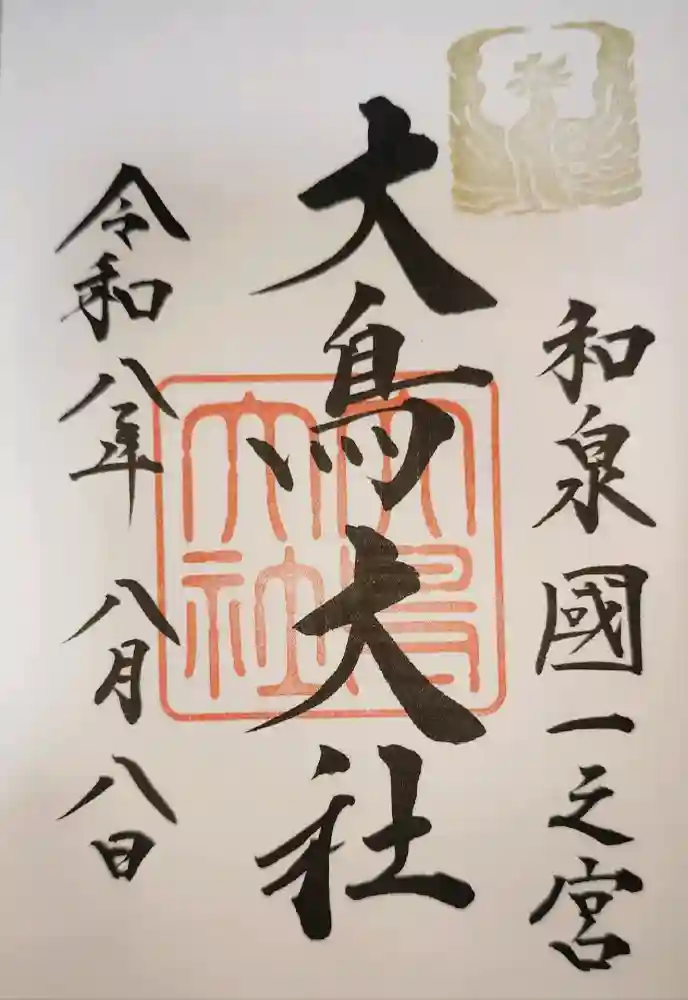 和泉國一之宮
大鳥大社
大鳥大社
令和八年八月八日